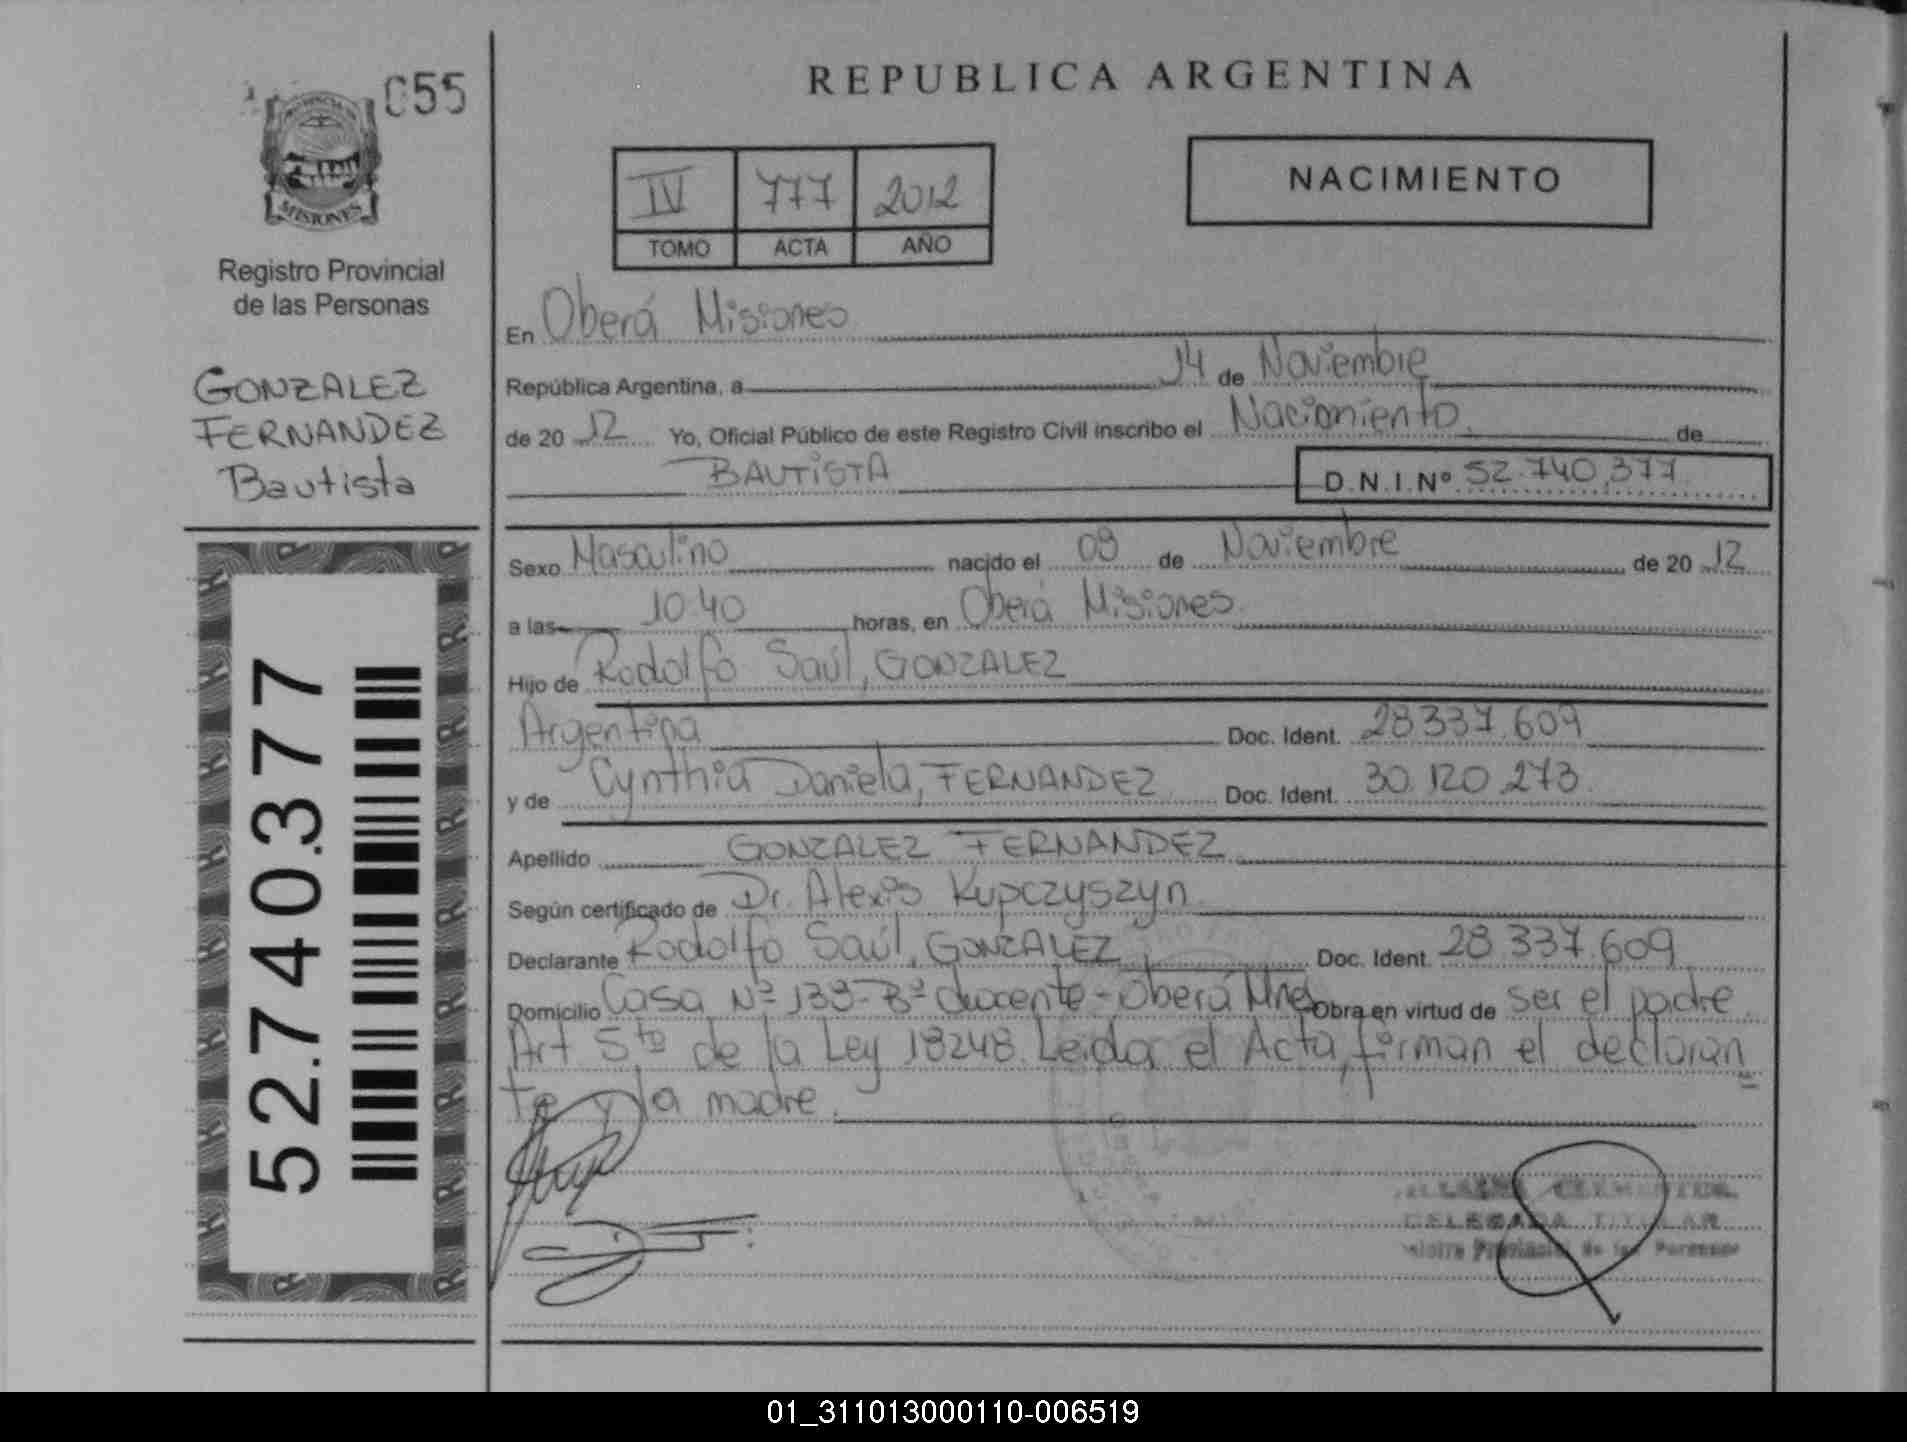 055
MISIONES
Registro Provincial
de las Personas
GONZALEZ
FERNANDEZ
Bautista
52.740.377
REPUBLICA ARGENTINA
IV 777 2012
TOMO ACTA AÑO
NACIMIENTO
En Oberá Misiones
República Argentina, a 14 de Noviembre
de 20 12 Yo, Oficial Público de este Registro Civil inscribo el Nacimiento de
BAUTISTA D.N.I.Nº 52.740.377
Sexo Masculino nacido el 09 de Noviembre de 20 12
a las 10:40 horas, en Oberá Misiones
Hijo de Rodolfo Saúl, GONZALEZ
Argentina Doc. Ident. 28.337.609
y de Cynthia Daniela, FERNANDEZ Doc. Ident. 30.120.273
Apellido GONZALEZ FERNANDEZ
Según certificado de Dr. Alexis Kupczyszyn
Declarante Rodolfo Saúl, GONZALEZ Doc. Ident. 28.337.609
Domicilio Casa Nº 139-Bº docente-Oberá Mnes Obra en virtud de ser el padre
Art 5to de la Ley 18248. Leida el Acta, firman el declaran
te y la madre.
DELEGADA TITULAR
Provincial de las Personas
01_311013000110-006519